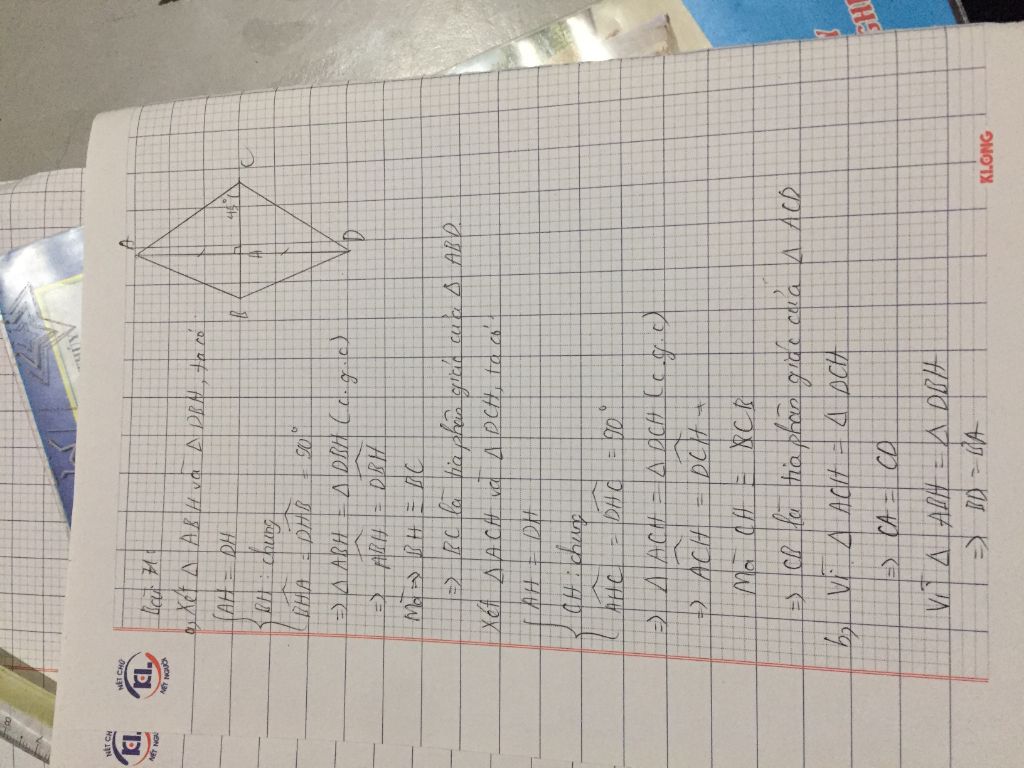 Bài 71:
a, Xét Δ ABH và Δ DBH, ta có:
AH = DH
BH : chung
BHA = DHB = 90°
=> Δ ABH = Δ DBH (c.g.c)
=> ABH = DBH
Mà => BH ≡ BC
=> BC là tia phân giác của Δ ABD
Xét Δ ACH và Δ DCH, ta có:
AH = DH
CH : chung
AHC = DHC = 90°
=> Δ ACH = Δ DCH (c.g.c)
=> ACH = DCH
Mà CH ≡ CB
=> CB là tia phân giác của Δ ACD
b, Vì Δ ACH = Δ DCH
=> CA = CD
Vì Δ ABH = Δ DBH
=> BD = BA
A
B
H
C
D
45°
KLONG
NÉT CHỮ
KL.
NẾT NGƯỜI
NÉT CH
KL.
NẾT NGƯ